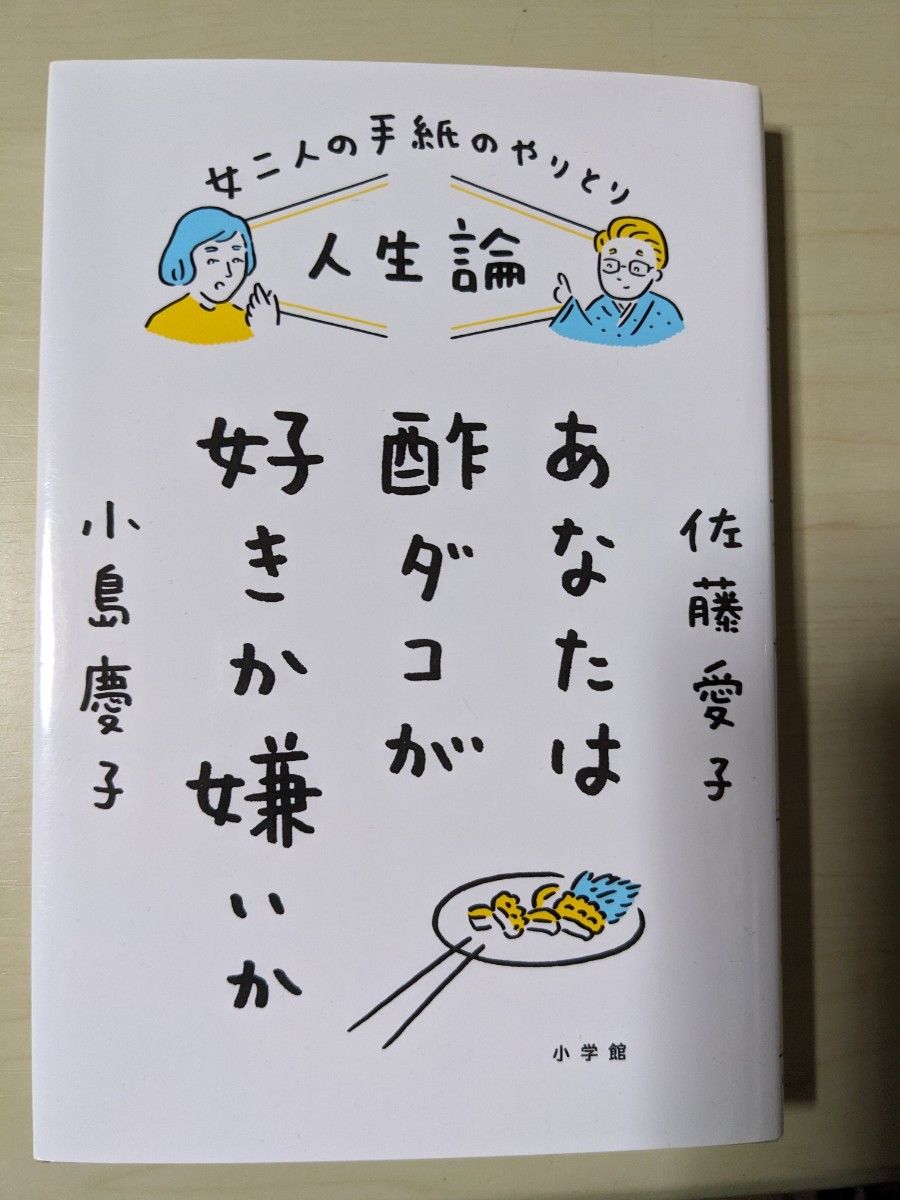 女二人の手紙のやりとり
人生論
佐藤愛子
あなたは
酢ダコが
好きか嫌いか
小島慶子
小学館